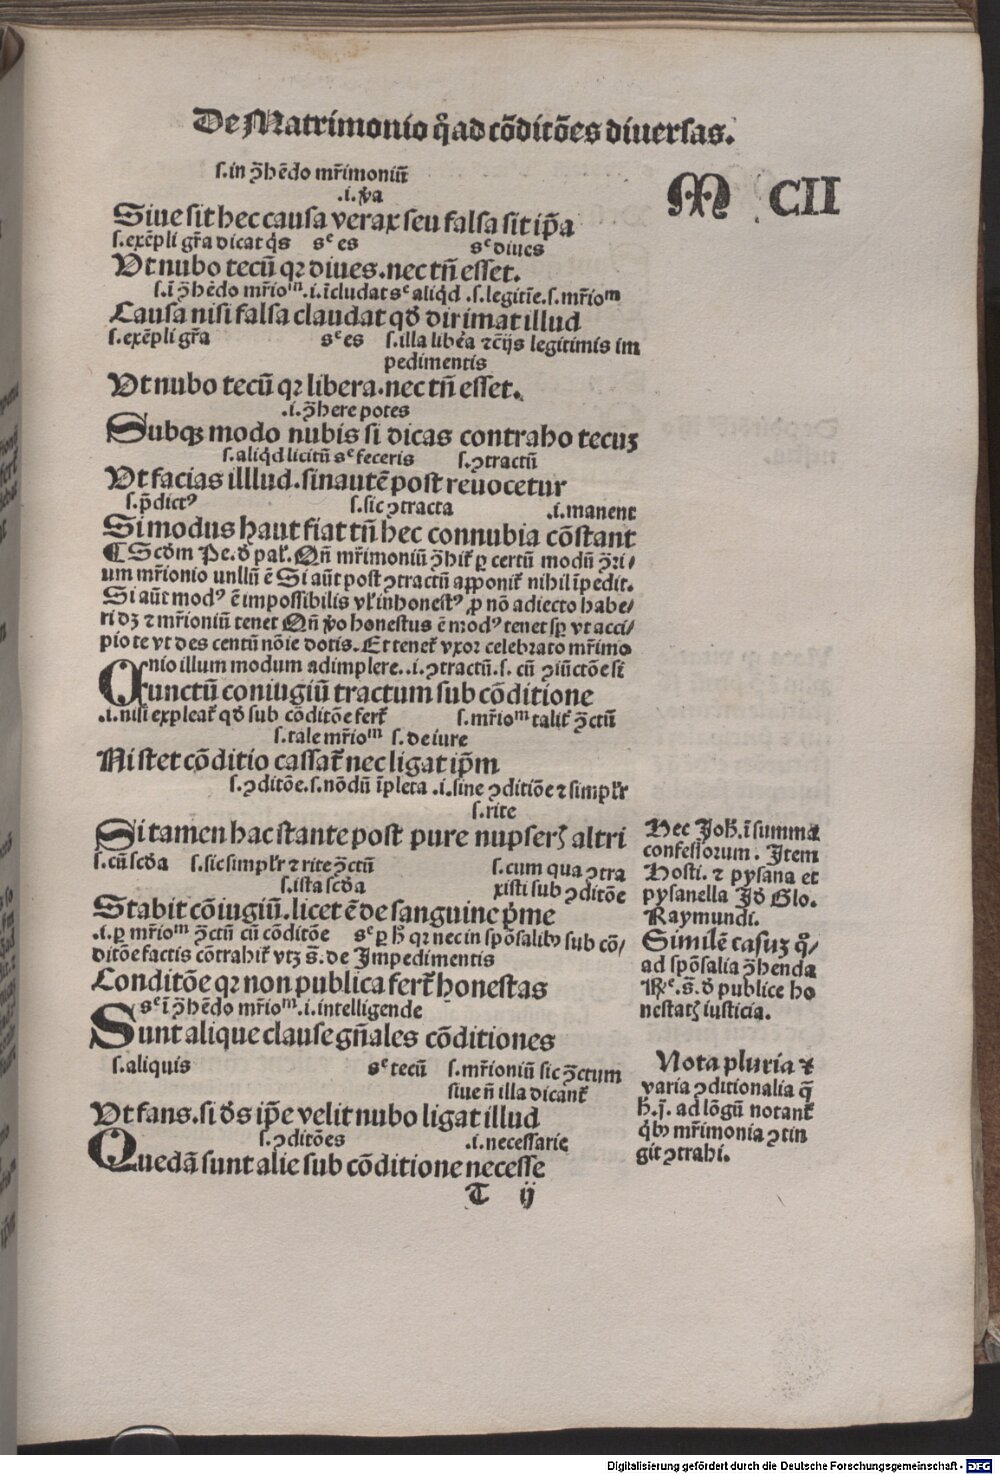 De Matrimonio q̊ad cōditōes diuersas.
M CII
s.in ꝯ̄hēdo mr̄imoniū
.i. v̓a
Siue sit hec causa verax seu falsa sit ip̄a
s.exēpli gr̄a dicat q̇s sᶜ es sᶜ diues
Vt nubo tecū qꝛ diues.nec tn̄ esset.
s.ī ꝯ̄hēdo mr̄ioᵐ.i.īcludat sᶜ aliq̇d .s.legitīe.s.mr̄ioᵐ
Causa nisi falsa claudat qḋ dirimat illud
s.exēpli gr̄a sᶜ es s.illa libēa ⁊c̄ijs legitimis im
pedimentis
Vt nubo tecū qꝛ libera.nec tn̄ esset.
.i.ꝯ̄here potes
Subqꝫ modo nubis si dicas contraho tecuꝫ
s.aliq̇d licitū sᶜ feceris s.ꝯtractū
Vt facias illlud.sinautē post reuocetur
s.p̄dictꝰ s.sic ꝯtracta .i.manent
Si modus haut fiat tn̄ hec connubia cōstant
¶ Scḋm Pe.ḋ pal̓. Qn̄ mr̄imoniū ꝯ̄hit̓ ꝑ certū modū ꝯ̄ri/
um mr̄ionio unllū ē Si aūt post ꝯtractū apponit̓ nihil īpedit.
Si aūt modꝰ ē impossibilis vl̓ inhonestꝰ ꝓ nō adiecto habe/
ri dꝫ ⁊ mr̄ioniū tenet Qn̄ v̓o honestus ē modꝰ tenet sꝑ vt acci/
pio te vt des centū nōie dotis. Et tenet̓ vxor celebrato mr̄imo
nio illum modum adimplere..i.ꝯtractū.s. cū ꝯiūctōe si
Cunctū coniugiū tractum sub cōditione
.i.nisi expleat̓ qḋ sub cōditōe fert̓ s.mr̄ioᵐ talit̓ ꝯ̄ctū
s.tale mr̄ioᵐ s.de iure
Ni stet cōditio cassat̓ nec ligat ip̄m
s.ꝯditōe.s.nōdū īpleta .i.sine ꝯditiōe ⁊ simpl̓r
s.rite
Si tamen hac stante post pure nupserꝭ altri
s.cū scḋa s.sic simpl̓r ⁊ rite ꝯ̄ctū s.cum qua ꝯtra
s.ista scḋa xisti sub ꝯditōe
Stabit cōiugiū.licet ē de sanguine p̓me
.i.ꝑ mr̄ioᵐ ꝯ̄ctū cū cōditōe sᶜ ꝑ h̄ qꝛ nec in spōsalibꝰ sub cō/
ditōe factis cōtrahit̓ vtꝫ s̄.de Impedimentis
Conditōe qꝛ non publica fert̓ honestas
sᶜ ī ꝯ̄hēdo mr̄ioᵐ.i.intelligende
Sunt alique clause gn̄ales cōditiones
s.aliquis sᶜ tecū s.mr̄ioniū sic ꝯ̄ctum
siue n̄ illa dicant̓
Vt fans.si ḋs ip̄e velit nubo ligat illud
s.ꝯditōes .i.necessarie
Quedā sunt alie sub cōditione necesse
T ij
Hec Joh̄.ī summa
confessorum. Item
Hosti. ⁊ pysana et
pysanella Iḋ Glo.
Raymundi.
Similē casuꝫ q̊/
ad spōsalia ꝯ̄henda
Rᶜ.s̄.ḋ publice ho
nestatꝭ iusticia.
Nota pluria ⁊
varia ꝯditionalia q̄
h̄.j. ad lōgū notant̓
q̇bꝰ mr̄imonia ꝯtin
git ꝯtrahi.